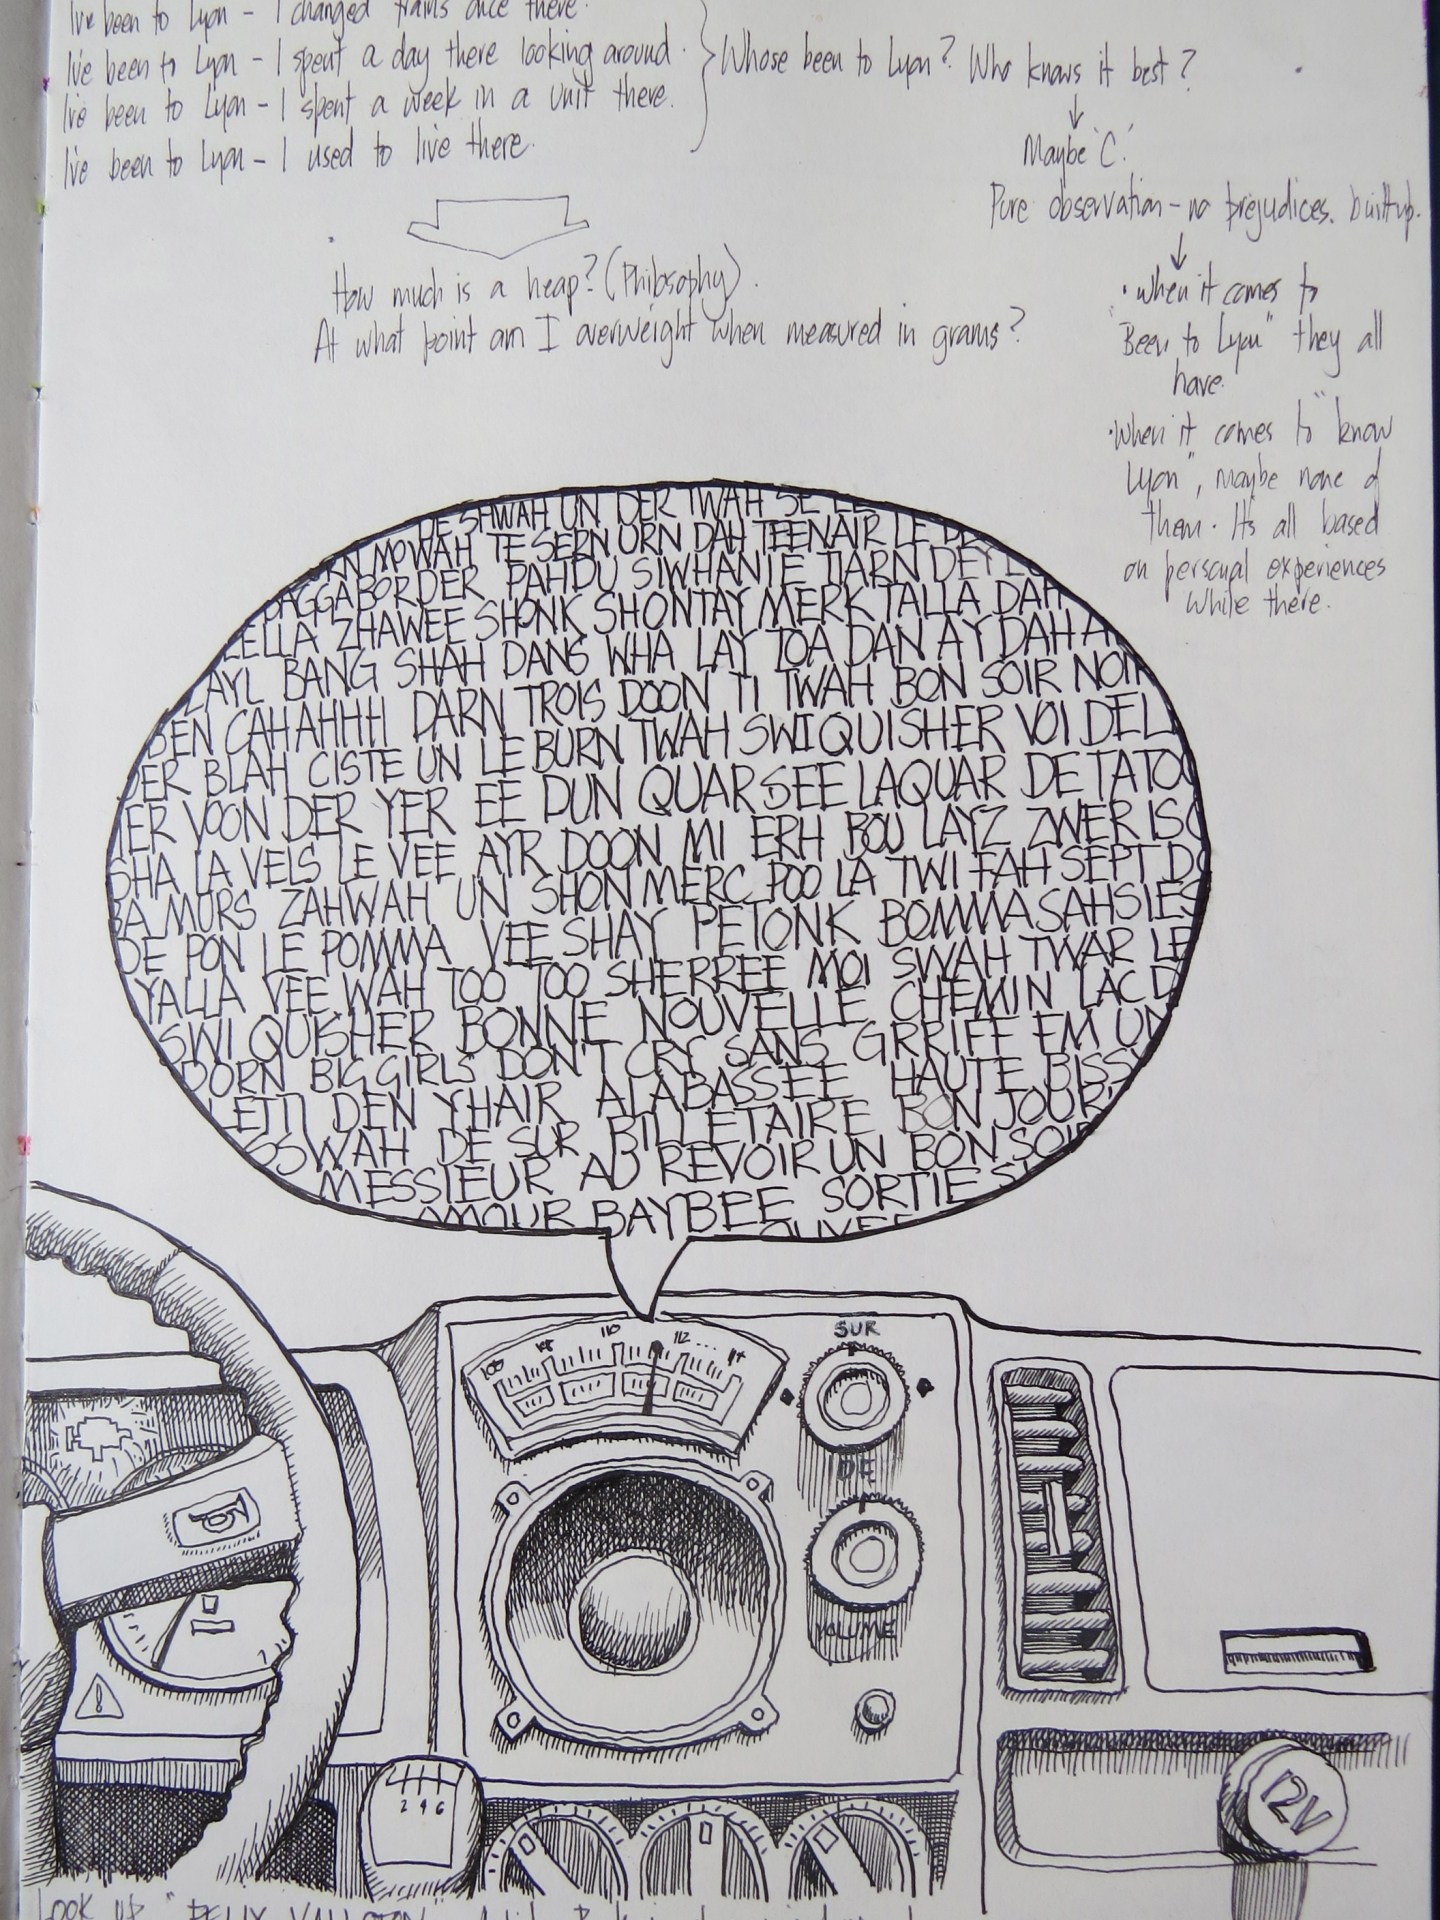 I've been to Lyon - I changed trains once there.
I've been to Lyon - I spent a day there looking around.
I've been to Lyon - I spent a week in a unit there.
I've been to Lyon - I used to live there.
Whose been to Lyon? Who knows it best?
Maybe 'C'.
Pure observation - no prejudices. builtup.
• When it comes to
"Been to Lyon" they all
have.
• When it comes to "know
Lyon", maybe none of
them. Its all based
on personal experiences
while there.
How much is a heap? (Philosophy).
At what point am I overweight when measured in grams?
DE SHWAH UN DER TWAH SE
MOWAH TE SERN URN DAH TEENAIR LE
DAGGABORDER PAHDU SIWHANIE TIARN DEY
ELLA ZHAWEE SHONK SHONTAY MERK TALLA DAH
LAYL BANG SHAH DANS WHA LAY TOA DAN AY DAH
BEN CAHAHHH DARN TROIS DOON TI TWAH BON SOIR NOIR
DER BLAH CISTE UN LE BURN TWAH SWI QUISHER VOI DEL
IER VOON DER YER EE DUN QUARSEE LAQUAR DE TATOU
SHA LA VELS LE VEE AYR DOON MI ERH BOU LAYZ ZWER ISO
BA MURS ZAHWAH UN SHON MERC POO LA TWI FAH SEPT DO
DE PON LE POMMA VEE SHAY PETONK BOMMASAHSIES
YALLA VEE WAH TOO TOO SHERREE MOI SWAH TWAR LE
SWI QUISHER BONNE NOUVELLE CHEMIN LAC D
DORN BIG GIRLS DON'T CRY SANS GRRIFF EM UN
LETTI DEN YHAIR ALABASSEE HAUTE BISSY
OSWAH DE SUR BILLETAIRE BON JOUR
MESSIEUR AU REVOIR UN BON SOIR
AMOUR BAYBEE SORTIE
OUVEE
108 110 112
SUR
DE
VOLUME
2 4 6
12V
LOOK UP "FELIX VALLOTON"